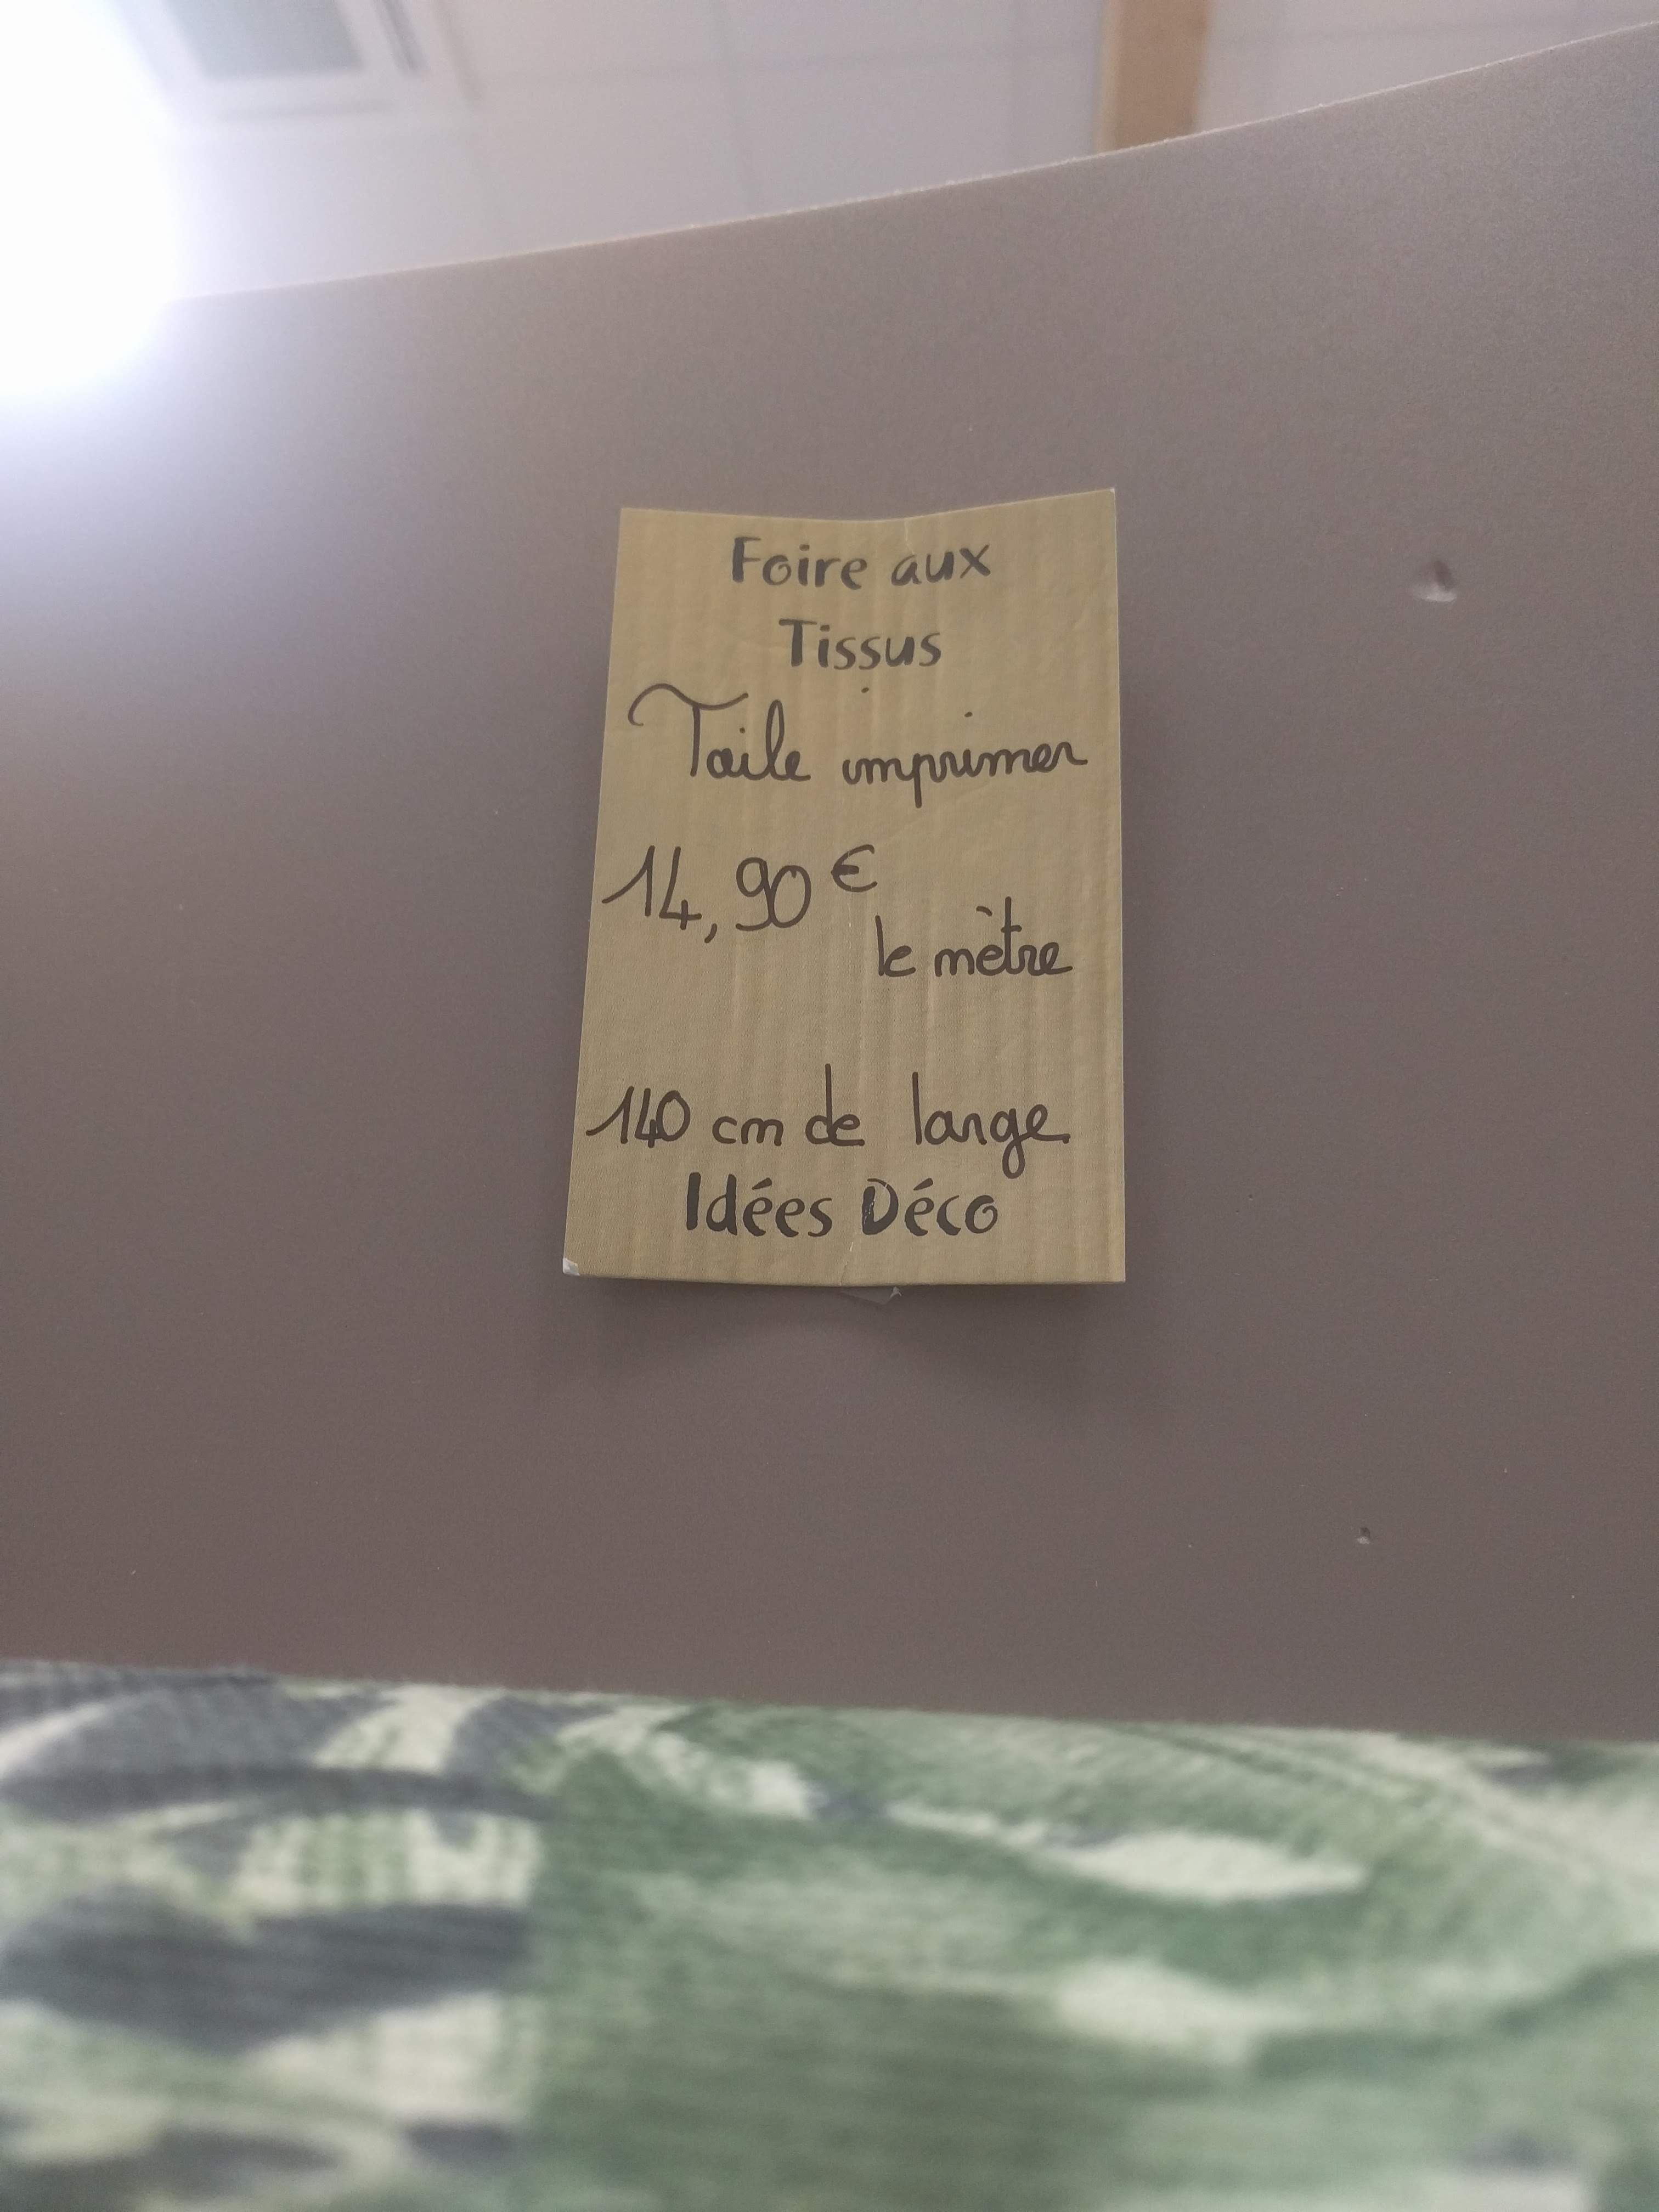 Foire aux
Tissus
Toile imprimer
14,90 €
le mètre
140 cm de large
Idées Déco